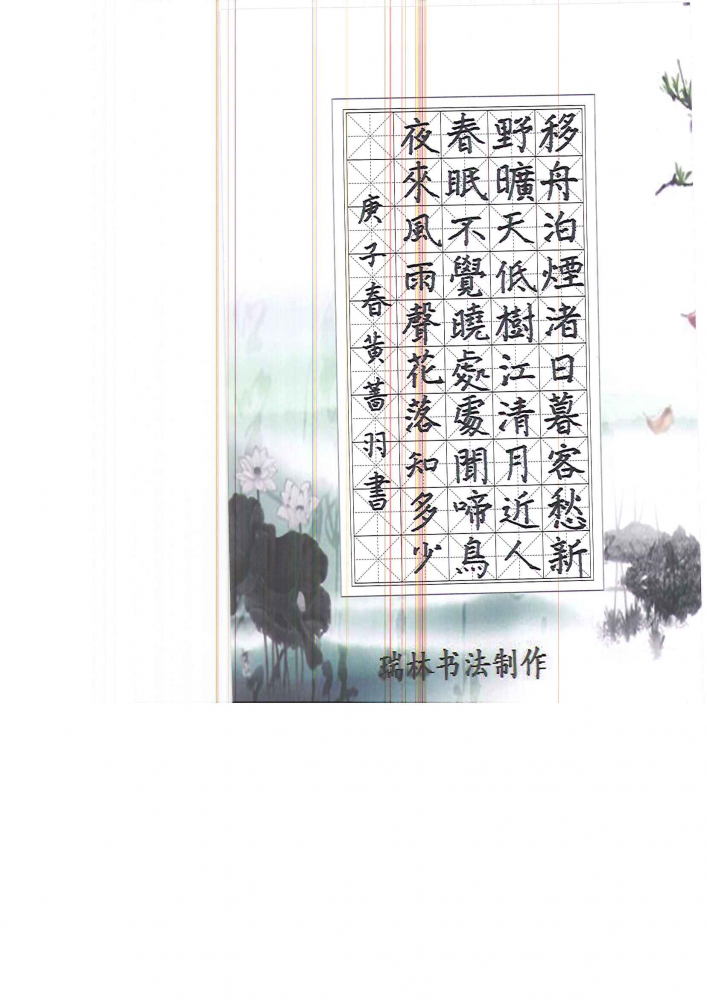 移舟泊煙渚日暮客愁新
野曠天低樹江清月近人
春眠不覺曉處處聞啼鳥
夜來風雨聲花落知多少
庚子春黄薔羽書
瑞林书法制作